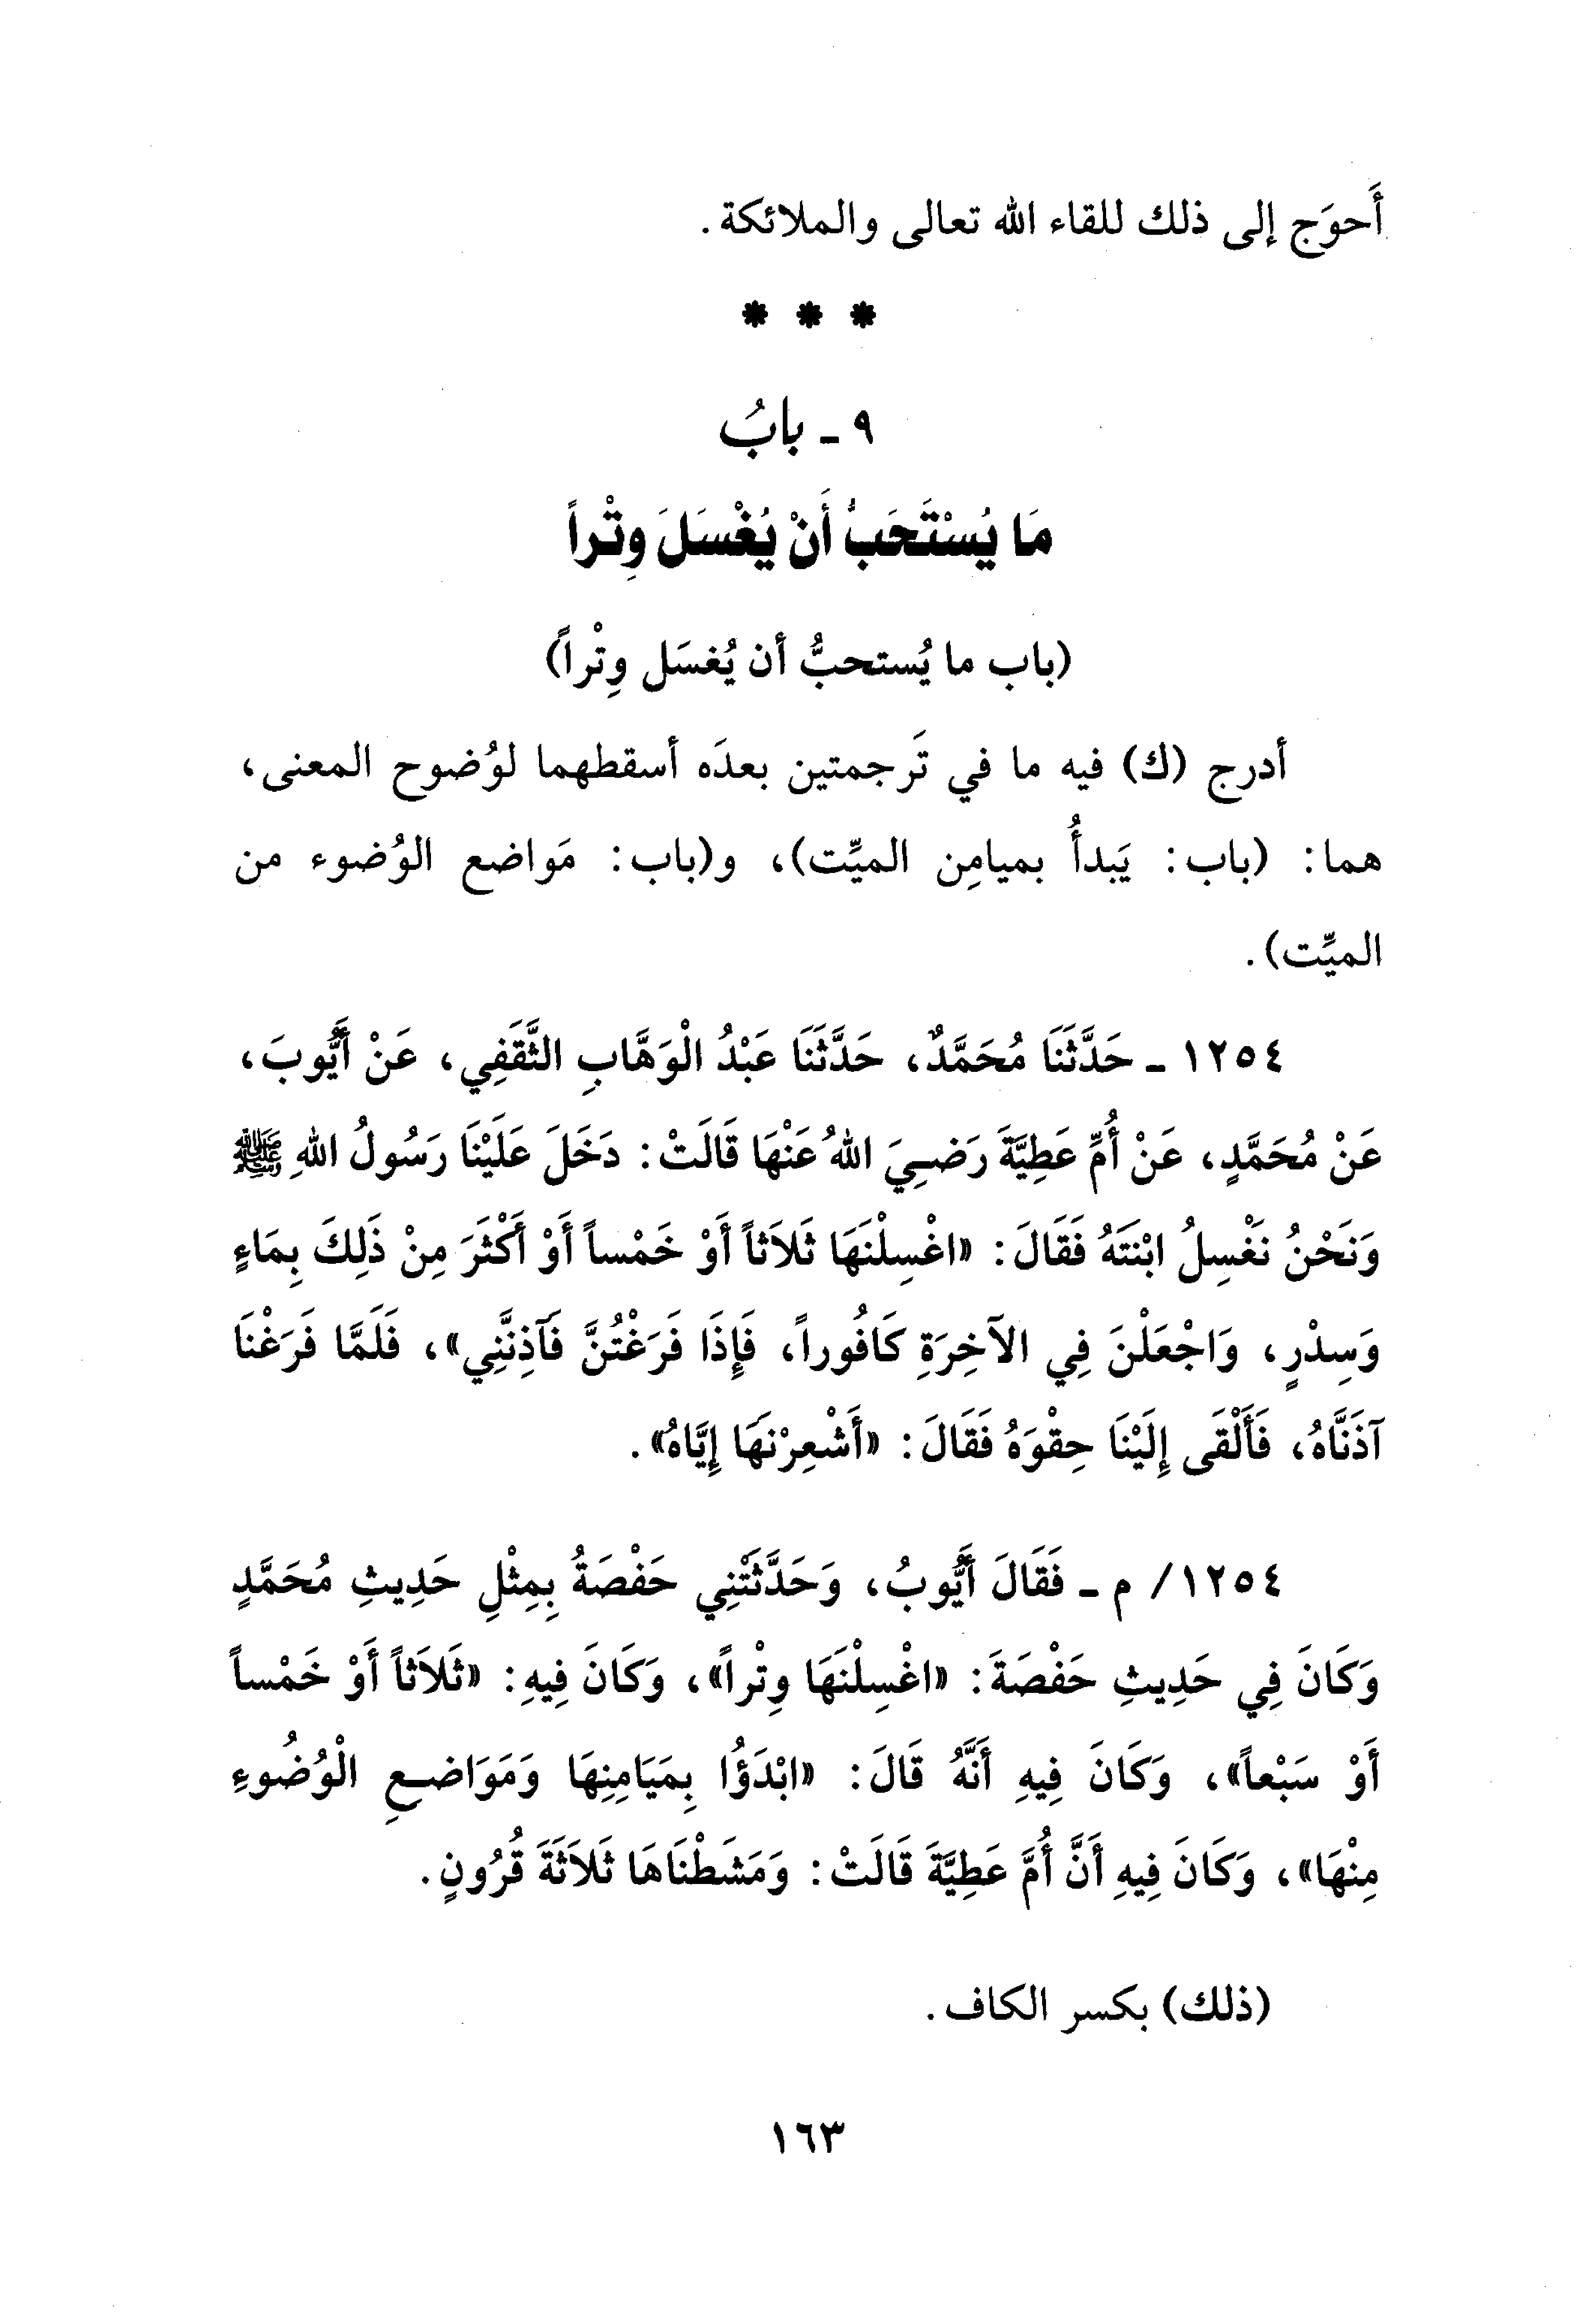 أَحوَج إلى ذلك للقاء الله تعالى والملائكة.
* * *
٩ - بابُ
مَا يُسْتَحَبُّ أَنْ يُغْسَلَ وِتْراً
(باب ما يُستحبُّ أن يُغسَل وِتْراً)
أدرج (ك) فيه ما في تَرجمتين بعدَه أسقطهما لوُضوح المعنى،
هما: (باب: يَبدأُ بميامِن الميِّت)، و(باب: مَواضع الوُضوء من
الميِّت).
١٢٥٤ - حَدَّثَنَا مُحَمَّدٌ، حَدَّثَنَا عَبْدُ الْوَهَّابِ الثَّقَفِي، عَنْ أَيُّوبَ،
عَنْ مُحَمَّدٍ، عَنْ أُمِّ عَطِيَّةَ رَضِيَ اللهُ عَنْهَا قَالَتْ: دَخَلَ عَلَيْنَا رَسُولُ اللهِ ﷺ
وَنَحْنُ نَغْسِلُ ابْنَتَهُ فَقَالَ: «اغْسِلْنَهَا ثَلاَثاً أَوْ خَمْساً أَوْ أَكْثَرَ مِنْ ذَلِكَ بِمَاءٍ
وَسِدْرٍ، وَاجْعَلْنَ فِي الآخِرَةِ كَافُوراً، فَإِذَا فَرَغْتُنَّ فَآذِنَّنِي»، فَلَمَّا فَرَغْنَا
آذَنَّاهُ، فَأَلْقَى إِلَيْنَا حِقْوَهُ فَقَالَ: «أَشْعِرْنَهَا إِيَّاهُ».
١٢٥٤/ م - فَقَالَ أَيُّوبُ، وَحَدَّثَتْنِي حَفْصَةُ بِمِثْلِ حَدِيثِ مُحَمَّدٍ
وَكَانَ فِي حَدِيثِ حَفْصَةَ: «اغْسِلْنَهَا وِتْراً»، وَكَانَ فِيهِ: «ثَلاَثاً أَوْ خَمْساً
أَوْ سَبْعاً»، وَكَانَ فِيهِ أَنَّهُ قَالَ: «ابْدَؤُا بِمَيَامِنِهَا وَمَوَاضِعِ الْوُضُوءِ
مِنْهَا»، وَكَانَ فِيهِ أَنَّ أُمَّ عَطِيَّةَ قَالَتْ: وَمَشَطْنَاهَا ثَلاَثَةَ قُرُونٍ.
(ذلك) بكسر الكاف.
١٦٣